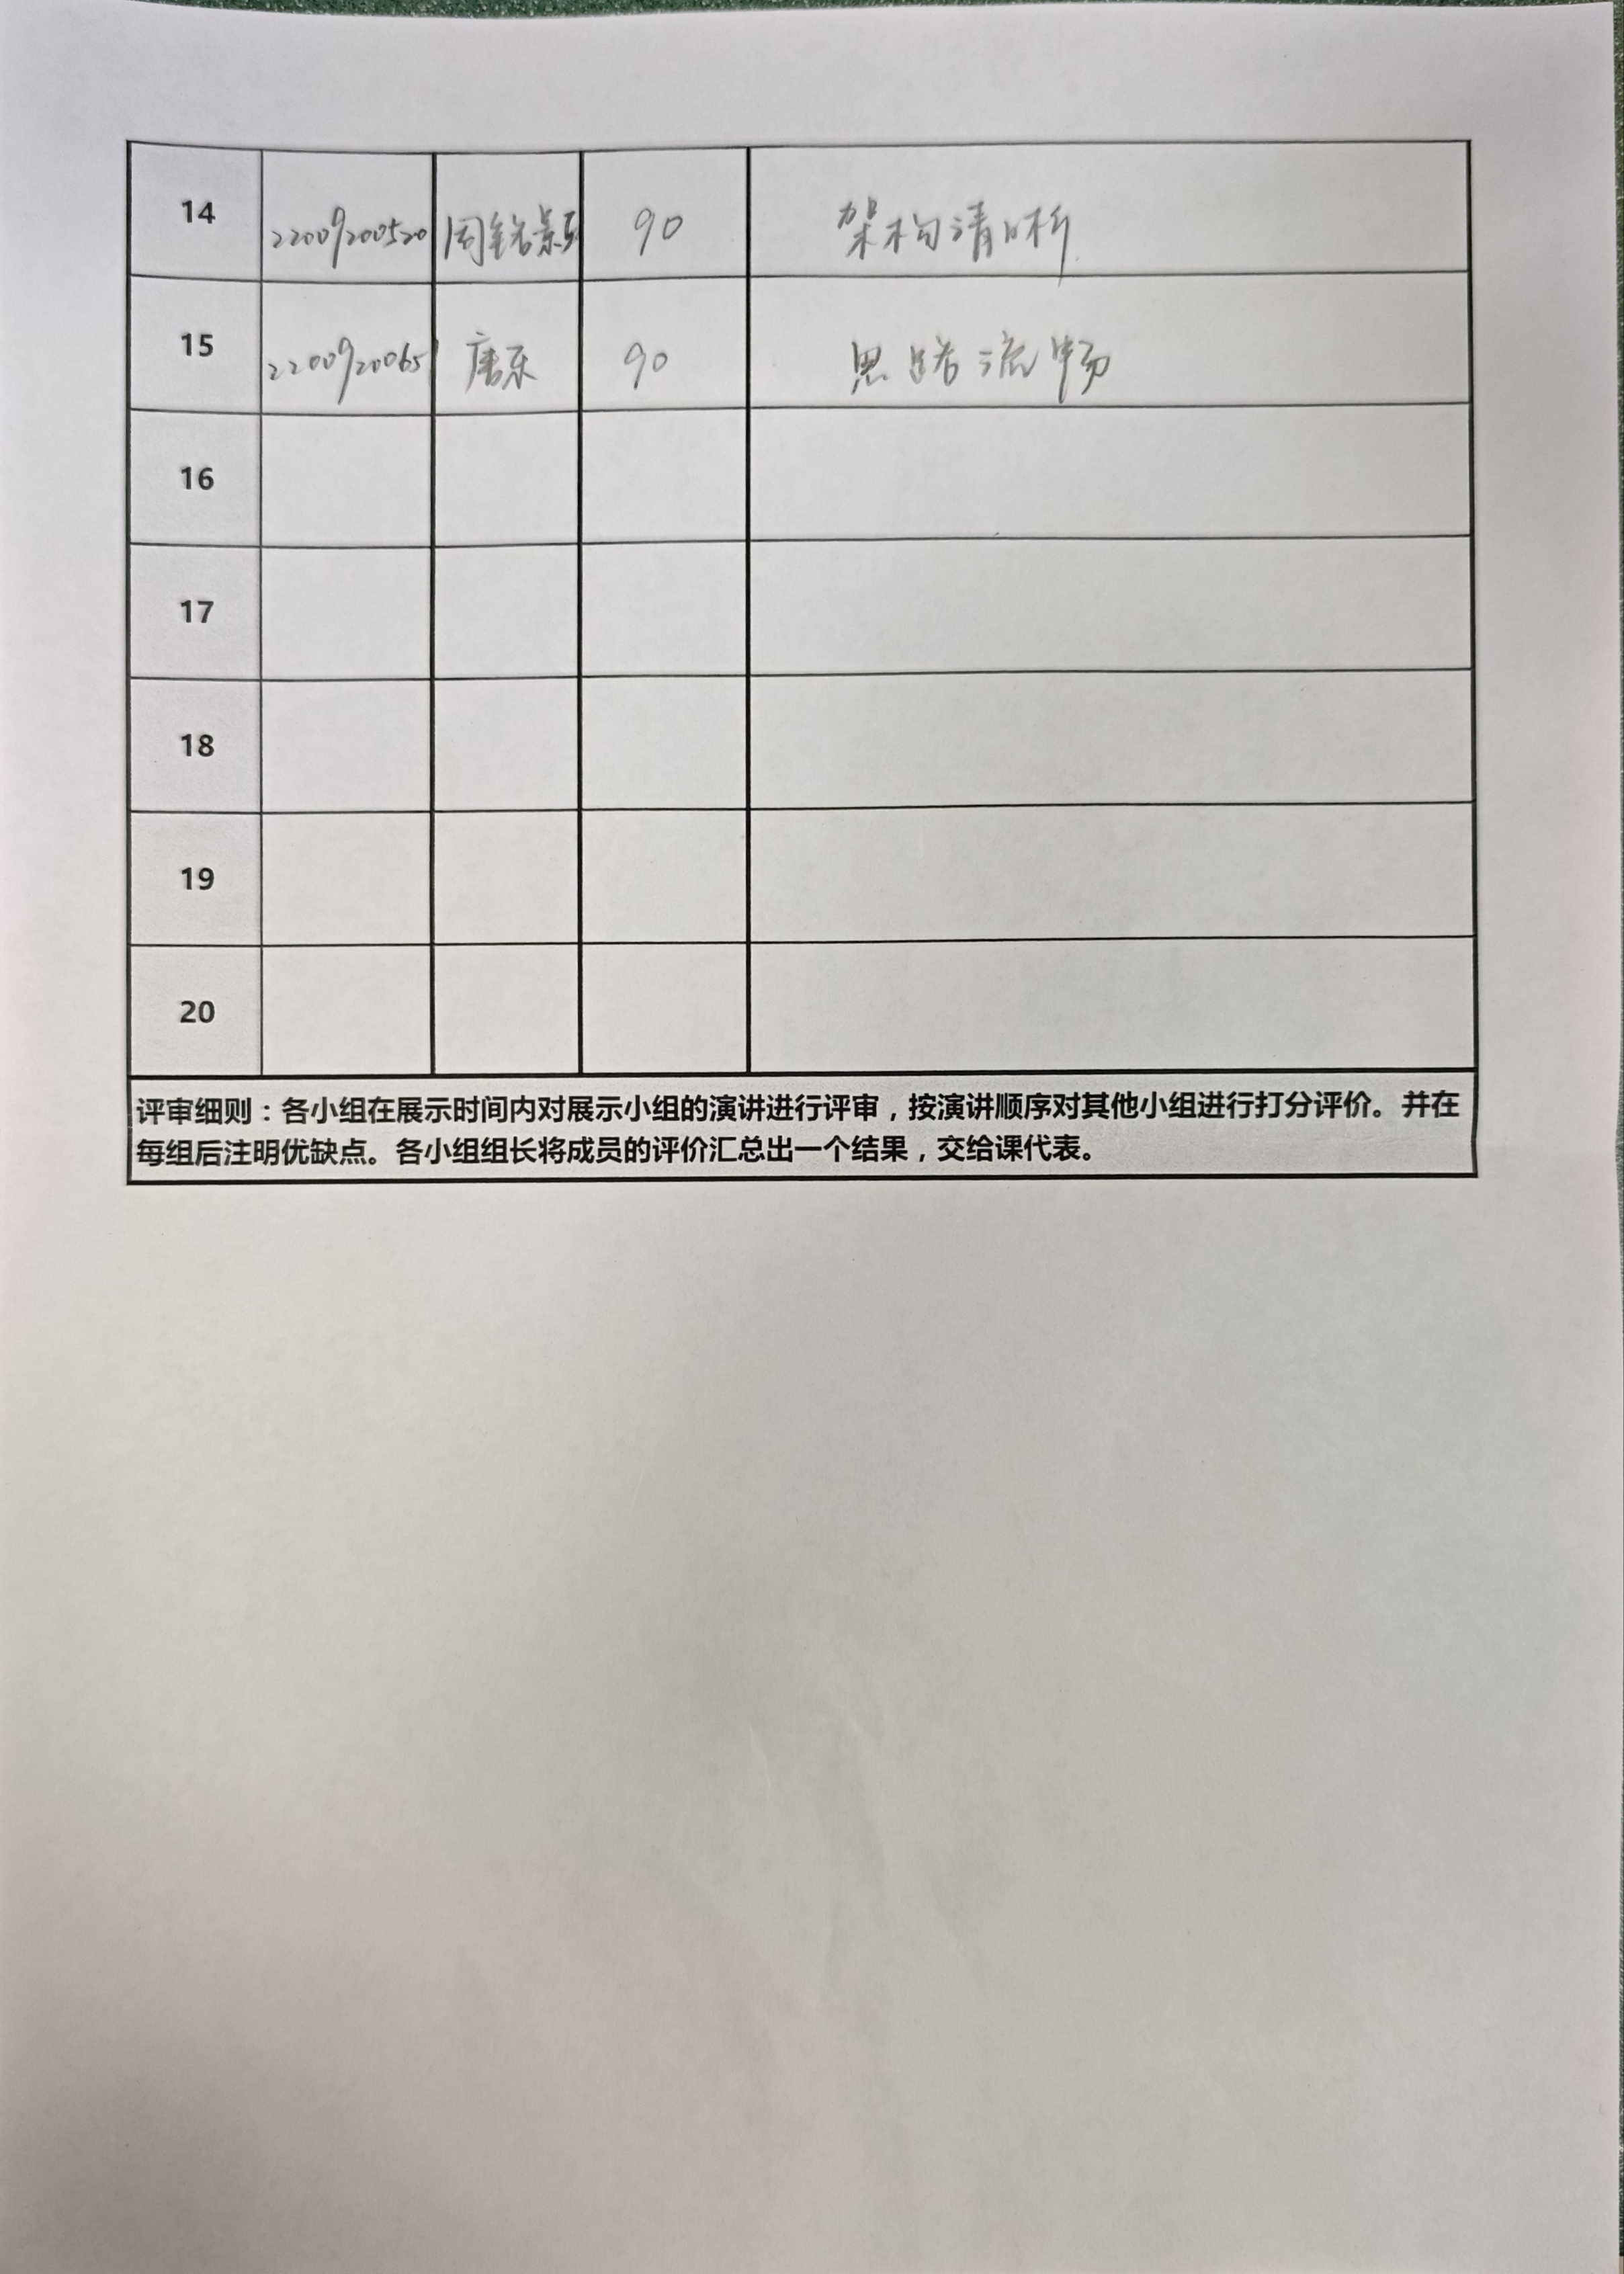 14 22009200520 90 架构清晰
15 22009200651 唐乐 90 思路流畅
16
17
18
19
20
评审细则：各小组在展示时间内对展示小组的演讲进行评审，按演讲顺序对其他小组进行打分评价。并在
每组后注明优缺点。各小组组长将成员的评价汇总出一个结果，交给课代表。